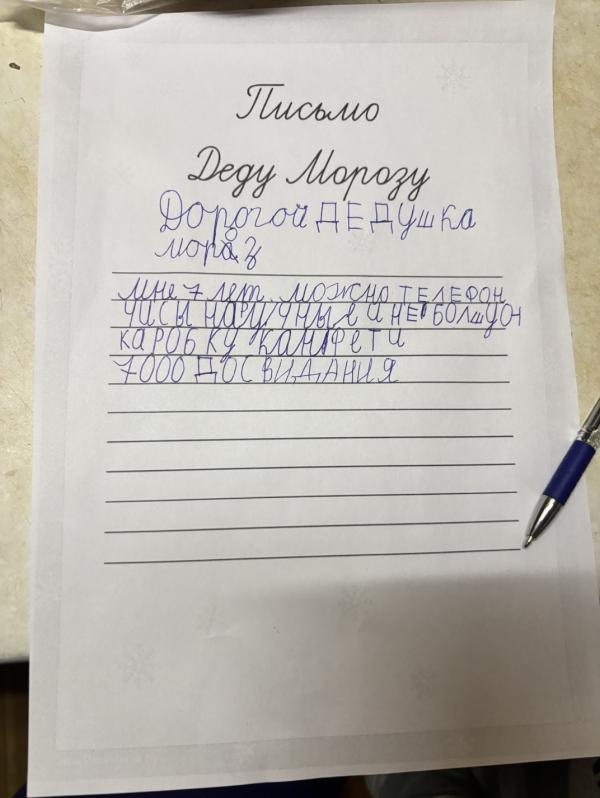 Письмо
Деду Морозу
Дорогой ДЕДушка
мораз
мне 7 лет. можно ТЕЛЕФОН
ЧИСЫ НаРУЧНЫЕ И НЕ БОЛШУОЧ
КАРОБКУ КАНФЕТИ
7000 ДОСВИДАНИЯ